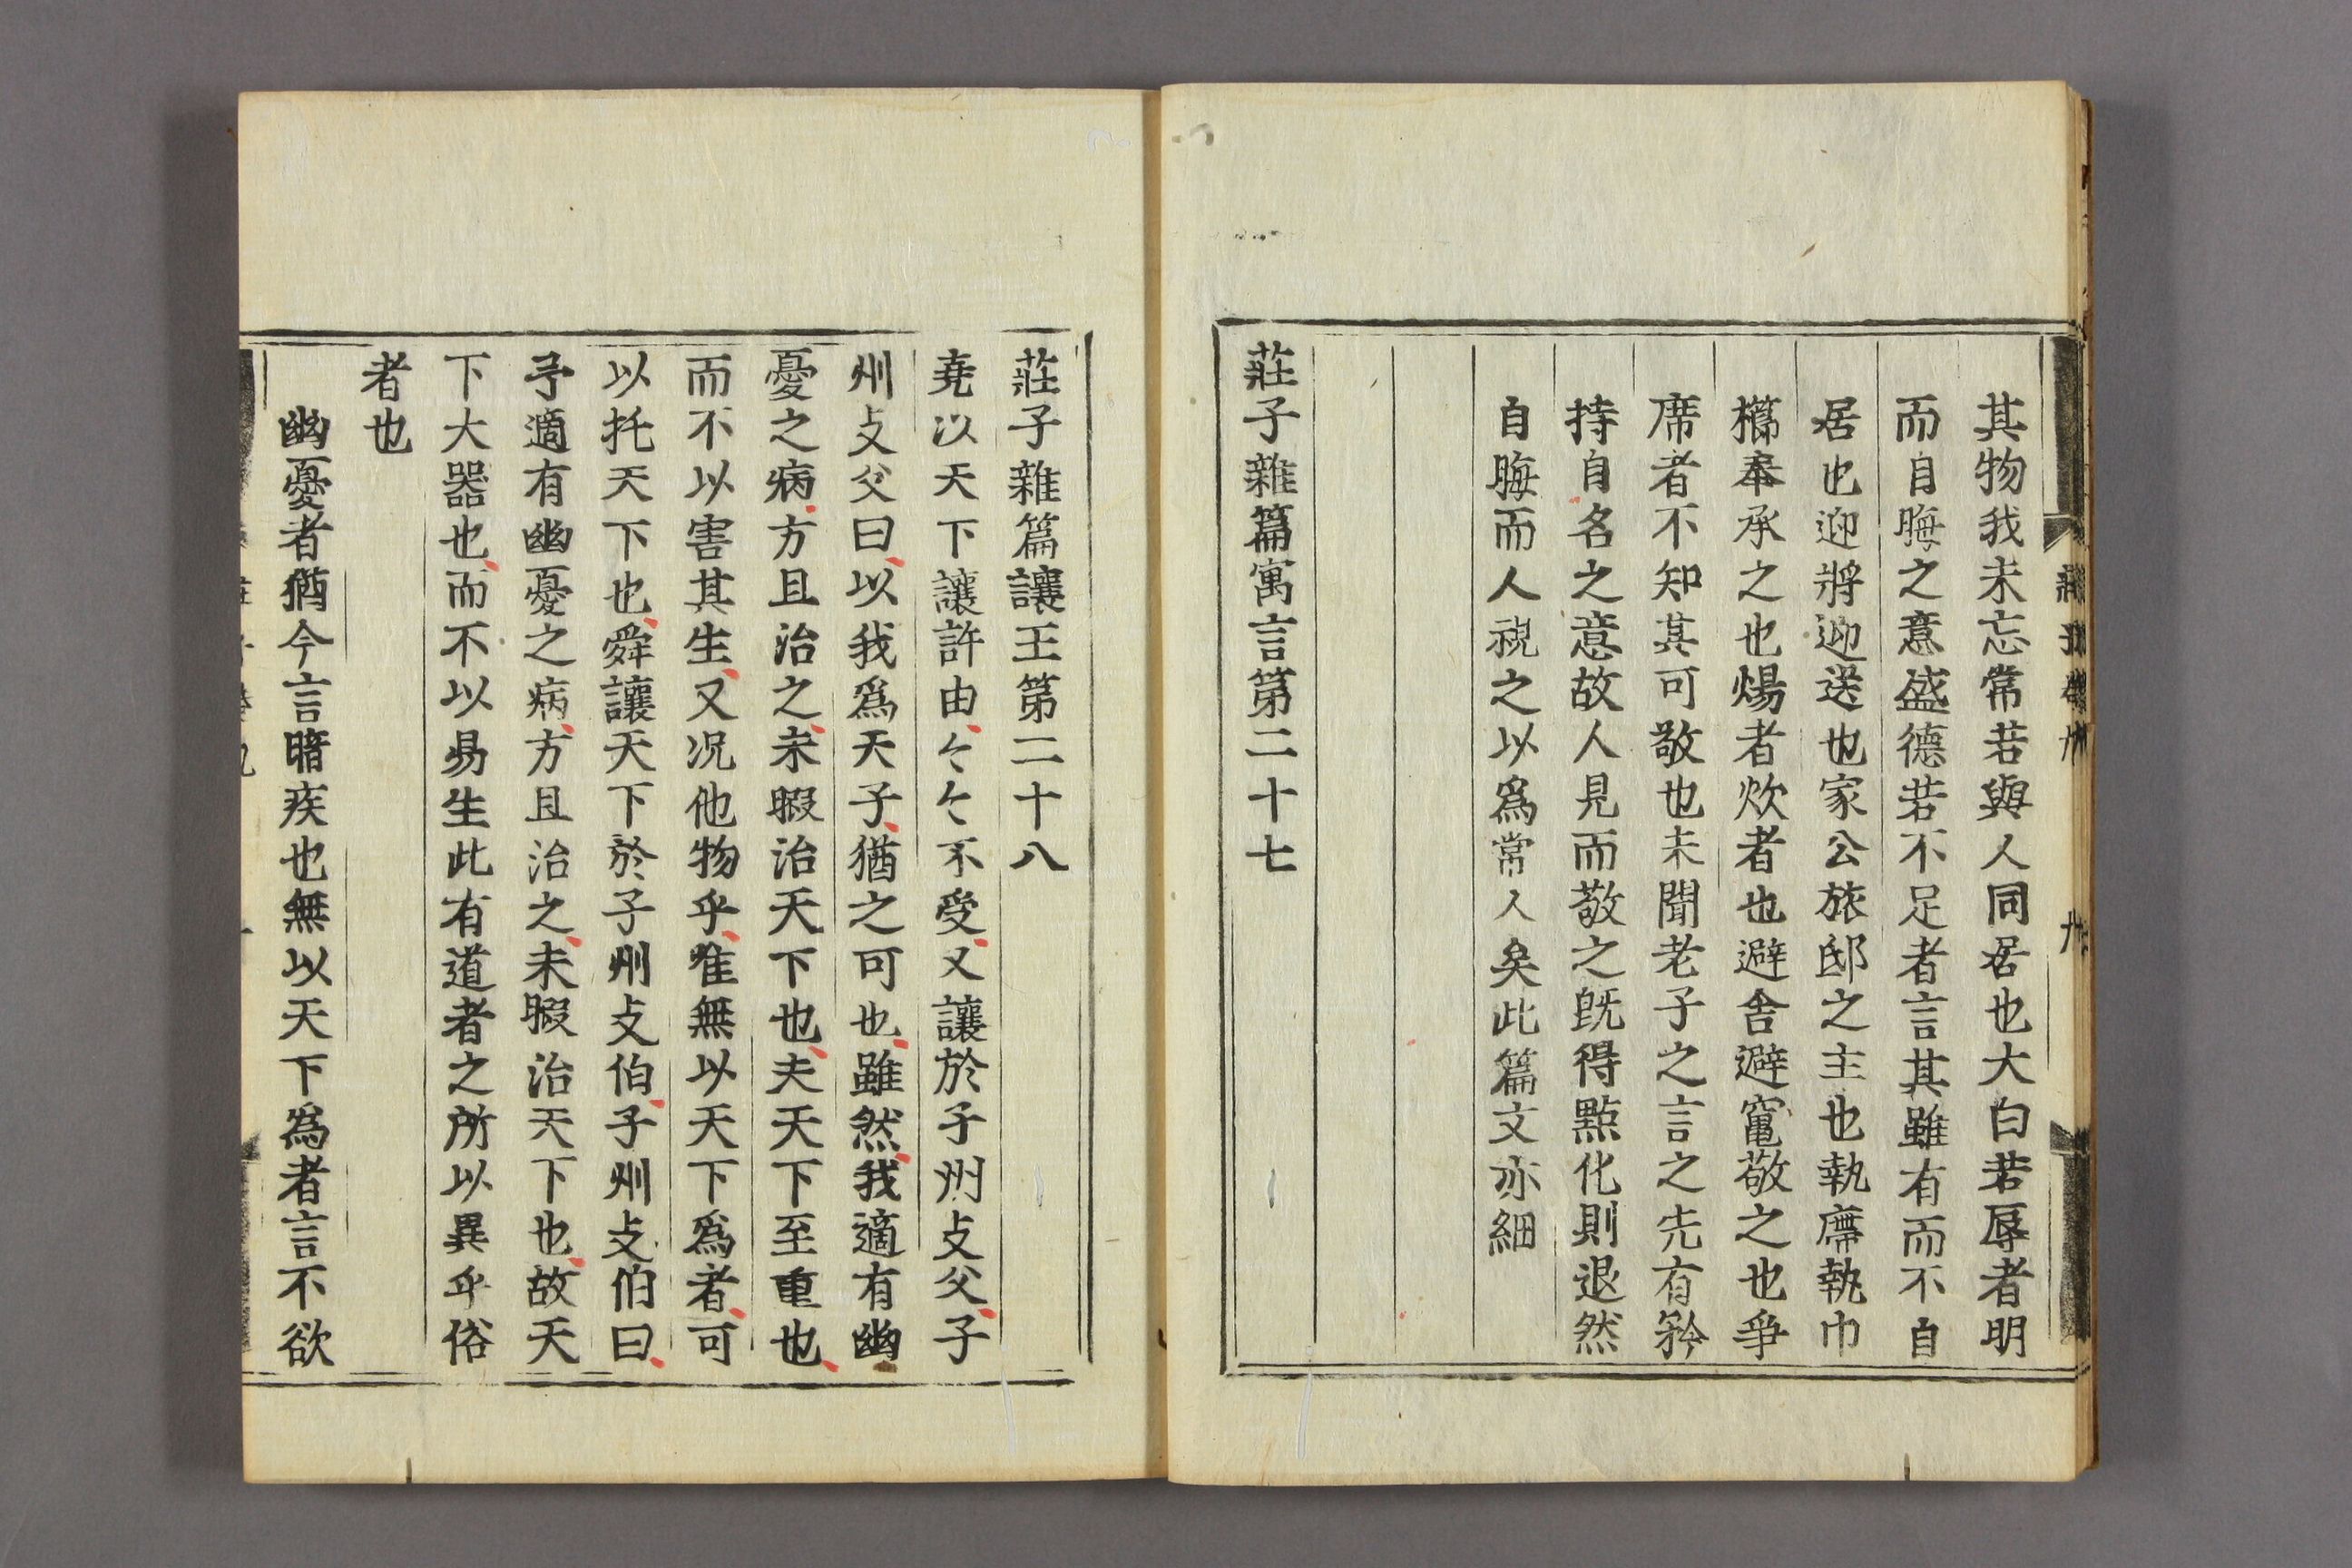 其物我未忘常若與人同居也大白若辱者明
而自晦之意盛德若不足者言其雖有而不自
居也迎將迎送也家公旅邸之主也執席執巾
櫛奉承之也煬者炊者也避舍避竈敬之也爭
席者不知其可敬也未聞老子之言之先有矜
持自名之意故人見而敬之既得點化則退然
自晦而人視之以爲常人矣此篇文亦細
莊子雜篇寓言第二十七
莊子雜篇讓王第二十八
堯以天下讓許由々々不受又讓於子州支父子
州支父曰以我爲天子猶之可也雖然我適有幽
憂之病方且治之未暇治天下也夫天下至重也
而不以害其生又况他物乎唯無以天下爲者可
以托天下也舜讓天下於子州支伯子州支伯曰
予適有幽憂之病方且治之未暇治天下也故天
下大器也而不以易生此有道者之所以異乎俗
者也
幽憂者猶今言暗疾也無以天下爲者言不欲